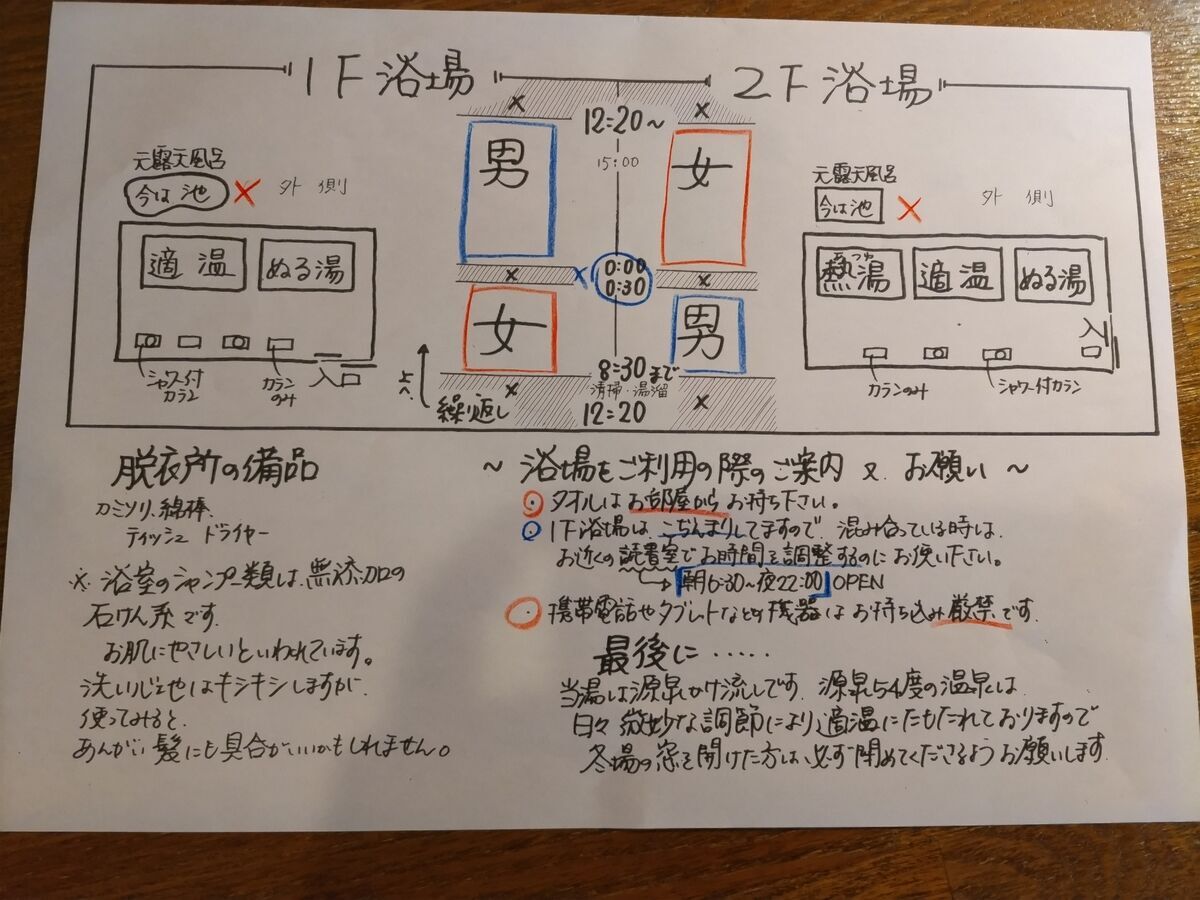 1F 浴場
2F 浴場
12:20~
15:00
男
女
0:00
0:30
女
男
8:30まで
清掃・湯溜
12:20
繰り返し
元露天風呂
今は池
外側
適温
ぬる湯
シャワー付
カラン
カラン
のみ
入口
元露天風呂
今は池
外側
熱湯
適温
ぬる湯
入口
カランのみ
シャワー付カラン
脱衣所の備品
カミソリ、綿棒、
ティッシュ ドライヤー
※ 浴室のシャンプー類は、無添加の
石けん系です.
お肌にやさしいといわれています。
洗い心地はキシキシしますが、
使ってみると、
あんがい髪にも具合がいいかもしれません。
~ 浴場をご利用の際のご案内 又 お願い ~
タオルはお部屋からお持ち下さい。
1F浴場は、こぢんまりしてますので、混み合っている時は、
お近くの読書室でお時間を調整するのにお使い下さい。
朝6:30~夜22:00 OPEN
携帯電話やタブレットなどの機器はお持ち込み厳禁です.
最後に・・・・・
当湯は源泉かけ流しです. 源泉54度の温泉は、
日々微妙な調節により適温にたもたれておりますので
冬場の窓を開けた方は、必ず閉めてくださるようお願いします.